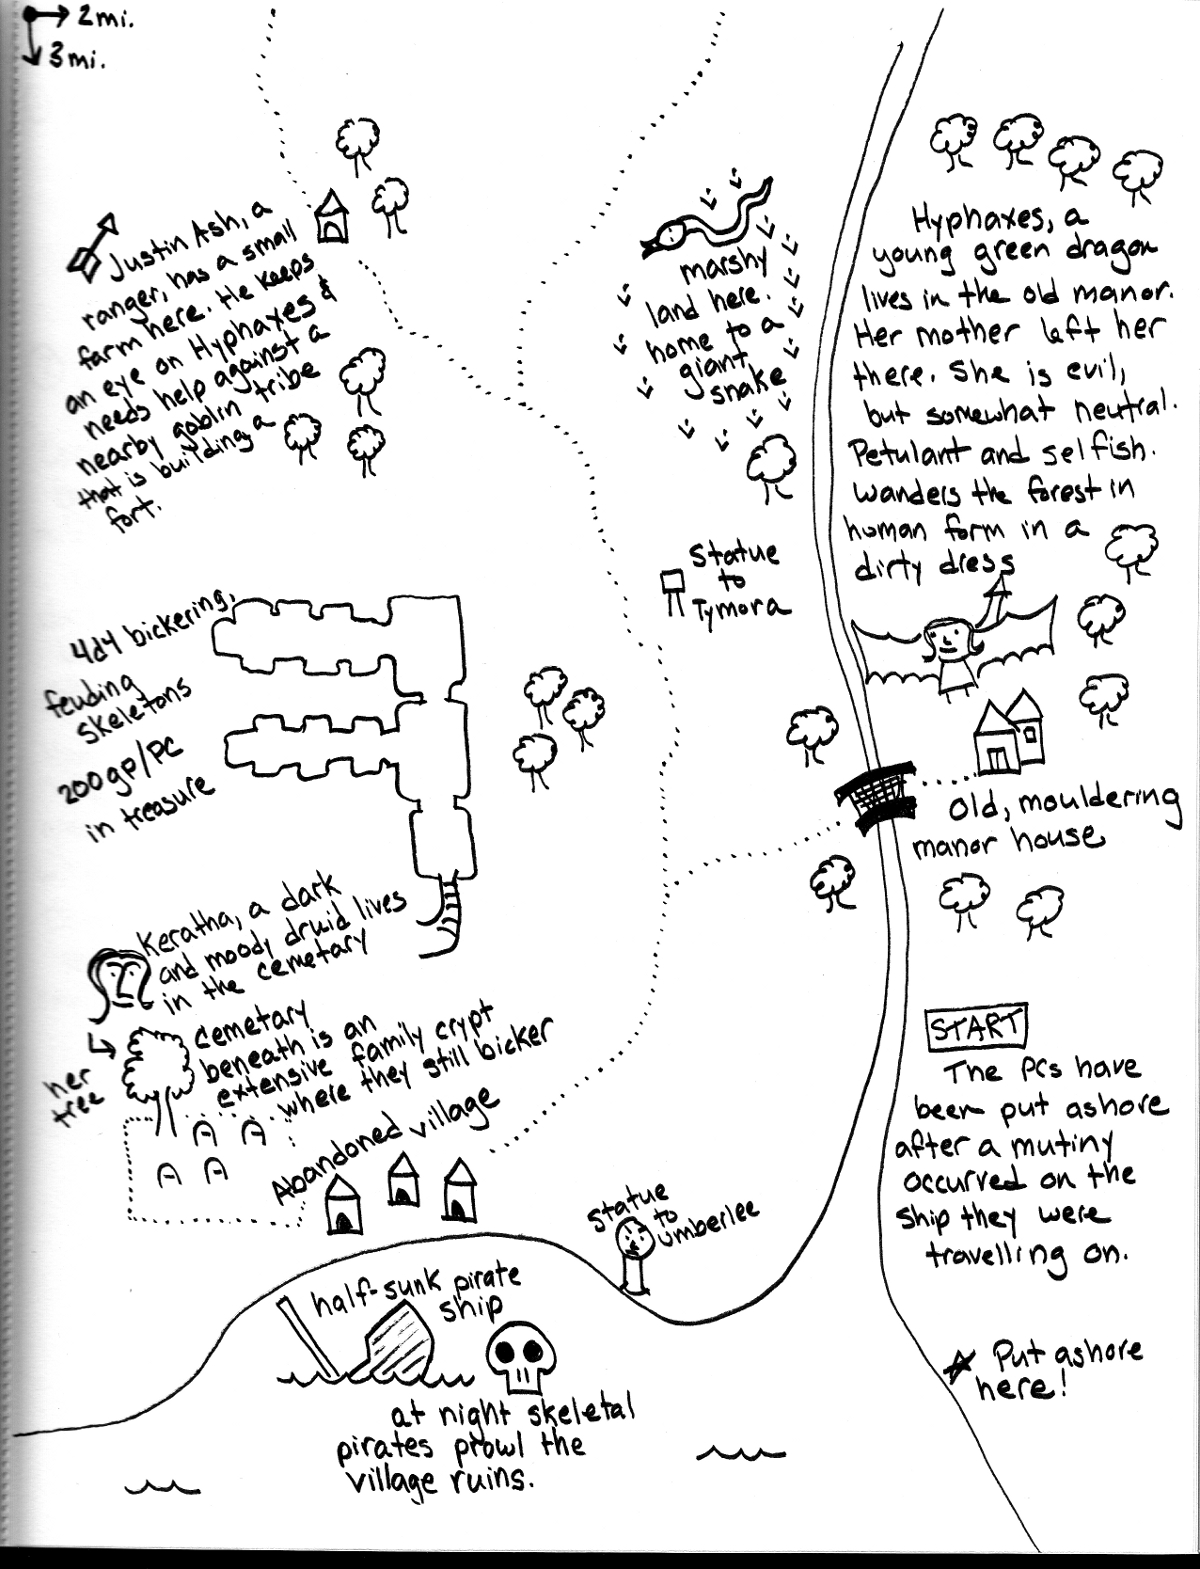 2mi.
3mi.
Justin Ash, a
ranger, has a small
farm here. He keeps
an eye on Hyphaxes &
needs help against a
nearby goblin tribe
that is building a
fort.
marshy
land here.
home to a
giant
snake
Hyphaxes, a
young green dragon
lives in the old manor.
Her mother left her
there. She is evil,
but somewhat neutral.
Petulant and selfish.
Wanders the forest in
human form in a
dirty dress
Statue
to
Tymora
4d4 bickering,
feuding
skeletons
200gp/PC
in treasure
Old, mouldering
manor house
Keratha, a dark
and moody druid lives
in the cemetary
her
tree
cemetary
beneath is an
extensive family crypt
where they still bicker
Abandoned village
START
The PCs have
been put ashore
after a mutiny
occurred on the
ship they were
travelling on.
Statue
to
Umberlee
half-sunk pirate
ship
Put ashore
here!
at night skeletal
pirates prowl the
village ruins.